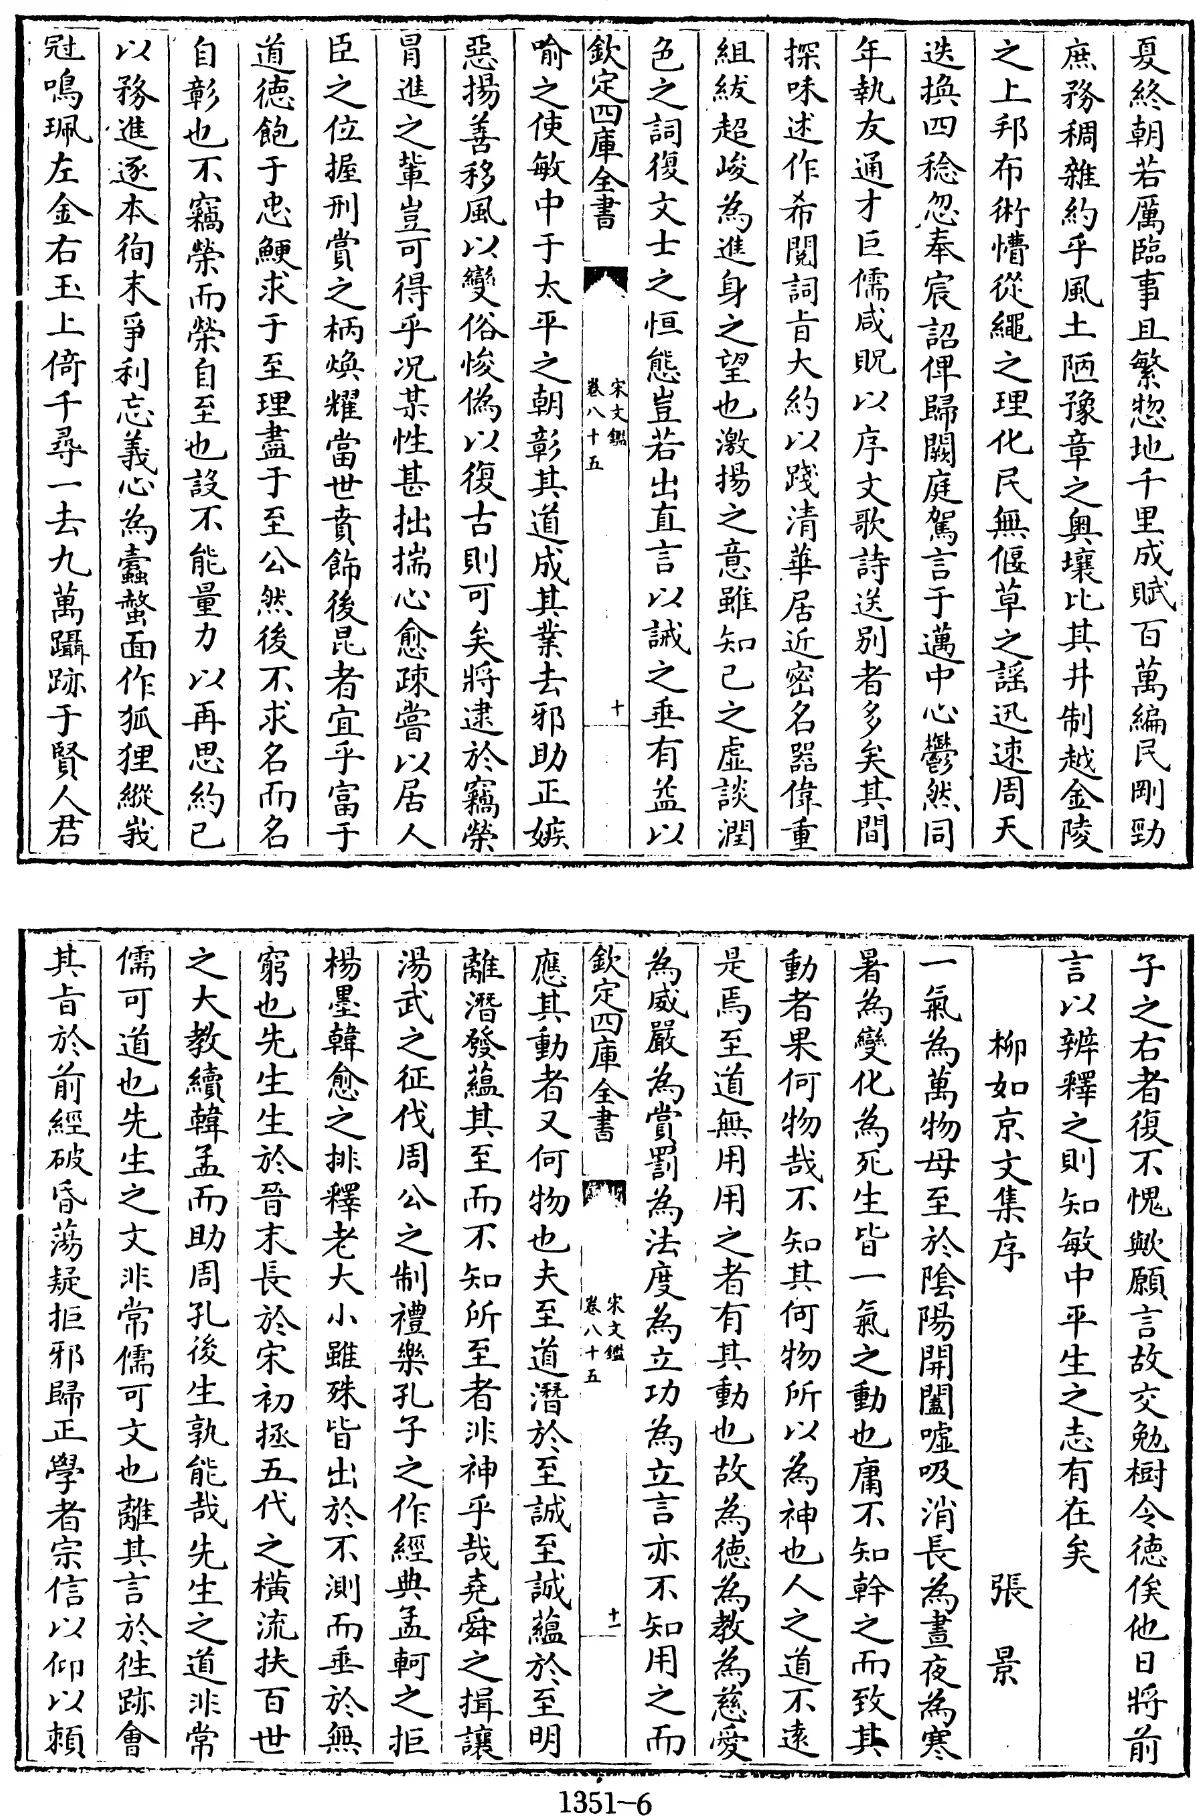 夏終朝若厲臨事且繁惣地千里成賦百萬編民剛勁
庶務稠雜約乎風土陋豫章之奥壤比其井制越金陵
之上邦布術慒從繩之理化民無偃草之謡迅速周天
迭換四稔忽奉宸詔俾歸闕庭駕言于邁中心鬱然同
年執友通才巨儒咸貺以序文歌詩送别者多矣其間
探味述作希閱詞㫖大約以踐清華居近密名器偉重
組紱超峻為進身之望也激揚之意雖知已之虛談潤
色之詞復文士之恒態豈若出直言以誡之垂有益以
欽定四庫全書
宋文鑑
卷八十五
十
喻之使敏中于太平之朝彰其道成其業去邪助正嫉
惡揚善移風以變俗悛偽以復古則可矣將逮於竊榮
冒進之輩豈可得乎况某性甚拙揣心愈疎嘗以居人
臣之位握刑賞之柄煥耀當世賁飾後昆者宜乎富于
道徳飽于忠鯁求于至理盡于至公然後不求名而名
自彰也不竊榮而榮自至也設不能量力以再思約已
以務進逐本徇末爭利忘義心為蠧螫面作狐狸縱峩
冠鳴珮左金右玉上倚千尋一去九萬躡跡于賢人君
子之右者復不愧歟願言故交勉樹令徳俟他日將前
言以辨釋之則知敏中平生之志有在矣
柳如京文集序 張景
一氣為萬物母至於陰陽開闔噓吸消長為晝夜為寒
暑為變化為死生皆一氣之動也庸不知幹之而致其
動者果何物哉不知其何物所以為神也人之道不逺
是焉至道無用用之者有其動也故為徳為教為慈愛
為威嚴為賞罰為法度為立功為立言亦不知用之而
欽定四庫全書
宋文鑑
卷八十五
十一
應其動者又何物也夫至道潛於至誠至誠藴於至明
離潛發藴其至而不知所至者非神乎哉堯舜之揖讓
湯武之征伐周公之制禮樂孔子之作經典孟軻之拒
楊墨韓愈之排釋老大小雖殊皆出於不測而垂於無
窮也先生生於晉末長於宋初拯五代之橫流扶百世
之大教續韓孟而助周孔後生孰能哉先生之道非常
儒可道也先生之文非常儒可文也離其言於徃跡會
其㫖於前經破昏蕩疑拒邪歸正學者宗信以仰以頼
1351—6